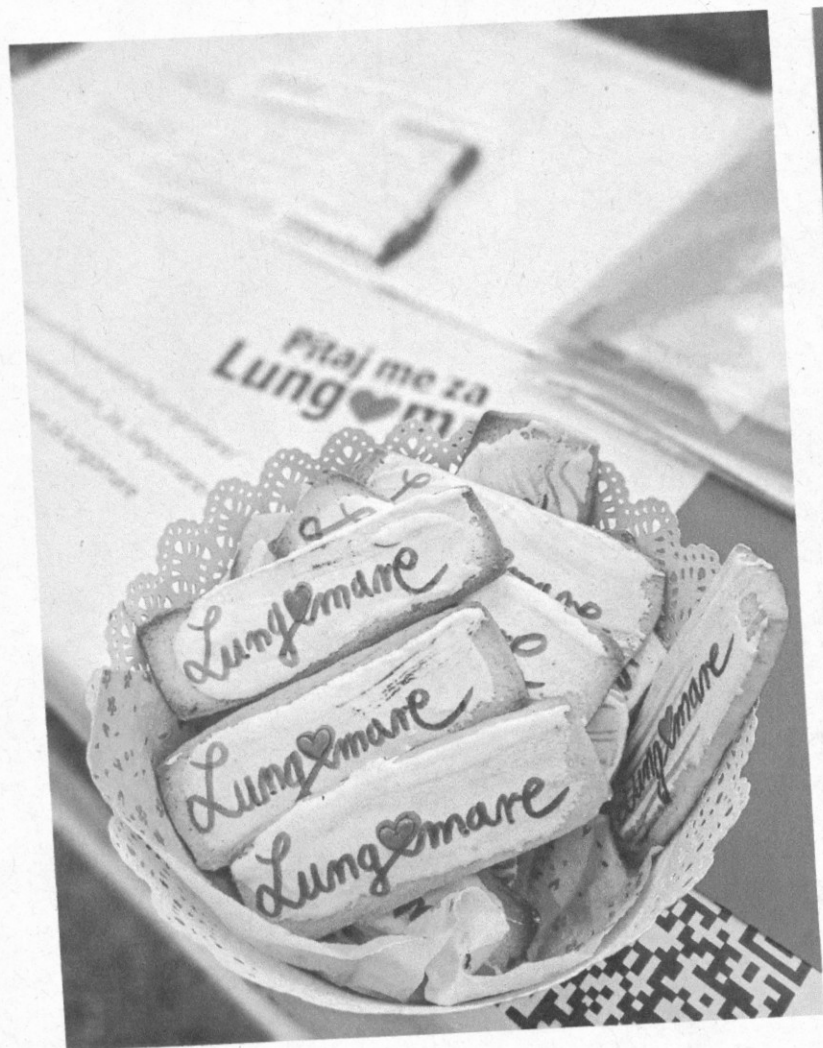 Pitaj me za
Lung♥m
Lung♥mare
Lung♥mare
Lung♥mare
Lung♥mare